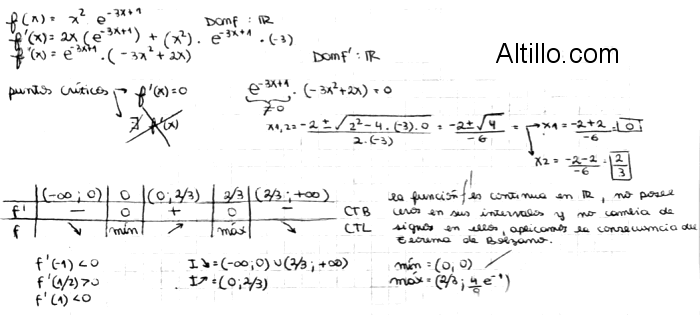 f(x) = x² e^(-3x+1) Domf : ℝ
f'(x) = 2x (e^(-3x+1)) + (x²) . e^(-3x+1) . (-3)
f'(x) = e^(-3x+1) . (-3x² + 2x) Domf' : ℝ
Altillo.com
puntos críticos → f'(x)=0 e^(-3x+1) . (-3x² + 2x) = 0
∄ f'(x) ≠0
x1,2 = -2 ± √(2² - 4 . (-3) . 0) / 2 . (-3) = -2 ± √4 / -6 = → x1 = -2+2 / -6 = 0
→ x2 = -2-2 / -6 = 2/3
(-∞ ; 0) 0 (0 ; 2/3) 2/3 (2/3 ; +∞)
f' - 0 + 0 - CTB
f ↘ mín ↗ máx ↘ CTL
la función f es continua en ℝ, no posee
ceros en sus intervalos y no cambia de
signos en ellos, aplicamos la consecuencia del
Teorema de Bolzano.
f'(-1) < 0 I↘ = (-∞ ; 0) ∪ (2/3 ; +∞) mín = (0 ; 0)
f'(1/2) > 0 I↗ = (0 ; 2/3) máx = (2/3 ; 4/9 e^(-1))
f'(1) < 0